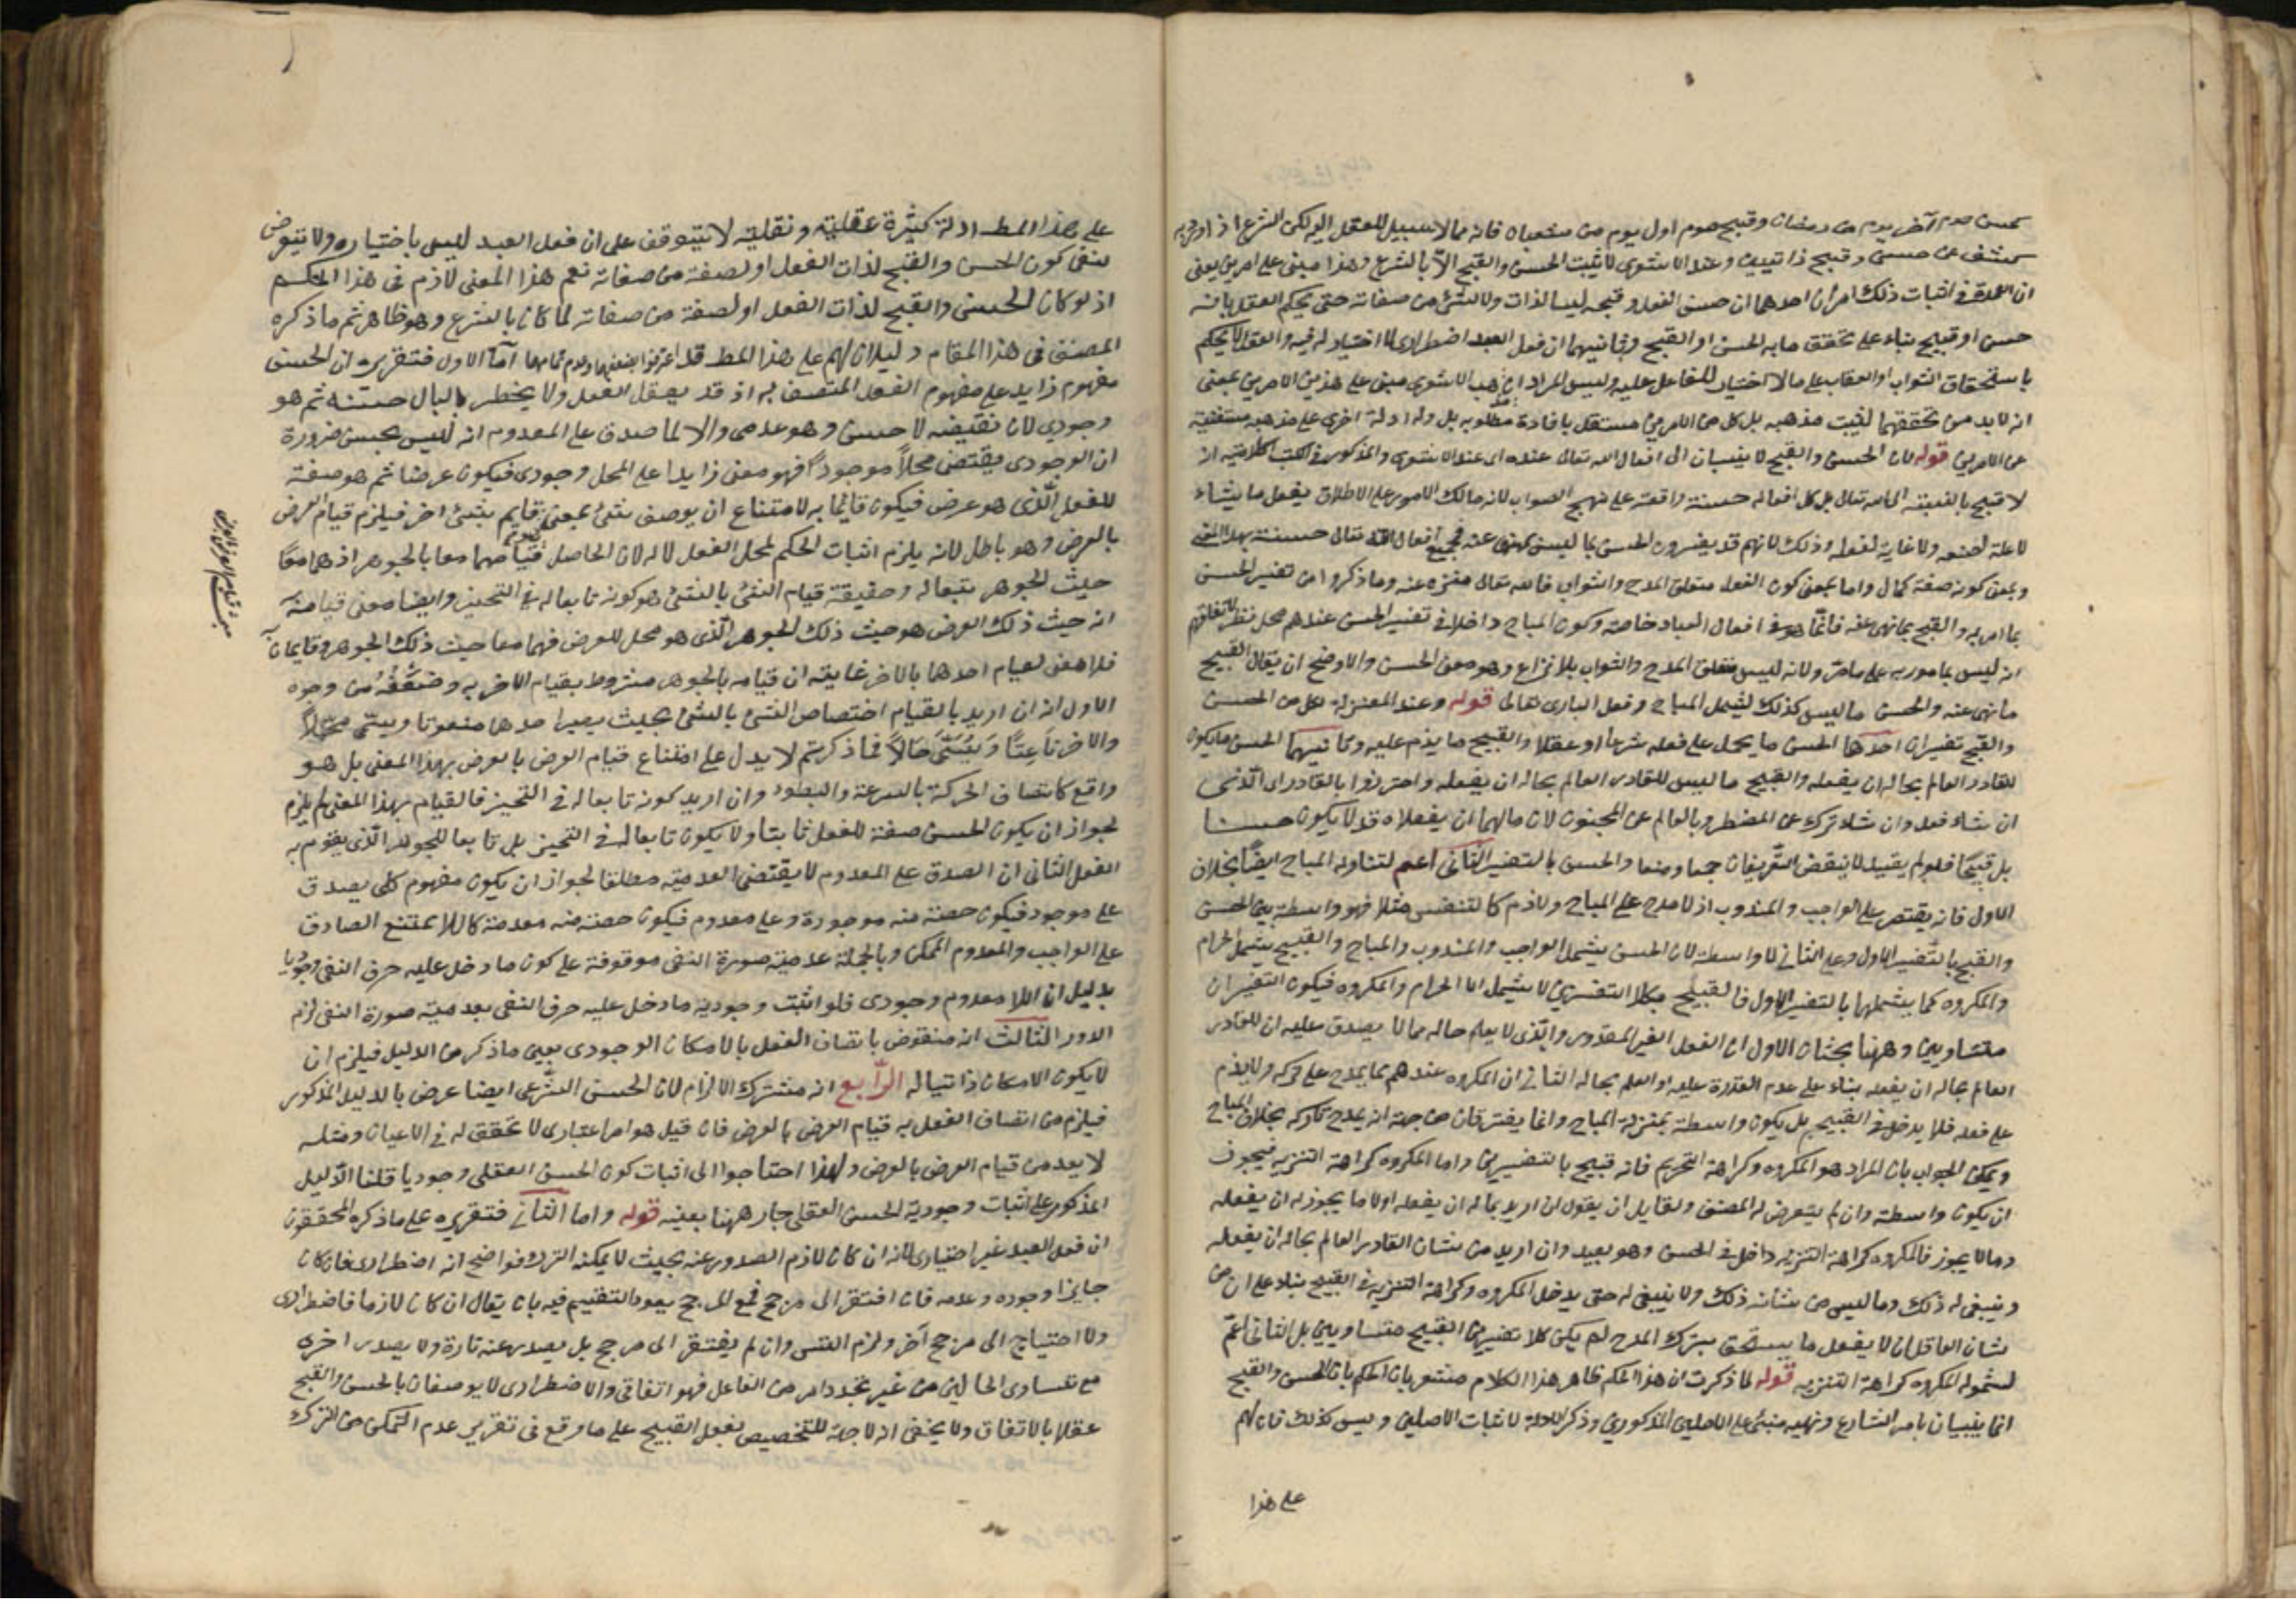 كحسن صوم آخر يوم من رمضان وقبيح صوم اول يوم من شعبان فانه مما لا سبيل للعقل اليه لكن الشرع اذا ورد به
كشف عن حسن وقبح ذاتيين وعند الاشعرى لا يثبت الحسن والقبح الا بالشرع وهذا مبنى على امرين يعنى
ان العمدة فى اثبات ذلك امران احدهما ان حسن الفعل وقبحه ليسا لذات ولا لشئ من صفاته حتى يحكم العقل بانه
حسن او قبيح بناء على تحقق ما به الحسن او القبح وثانيهما ان فعل العبد اضطرارى لا اختيار له فيه والعقل لا يحكم
باستحقاق الثواب او العقاب على ما لا اختيار للفاعل عليه وليس المراد ان مذهب الاشعرى مبنى على هذين الامرين بمعنى
انه لا بد من تحققهما ليثبت مذهبه بل كل من الامرين مستقل بافادة مطلوبه بل وله ادلة اخرى على مذهبه مستغنية
عن الامرين قوله لان الحسن والقبح لا ينسبان الى افعال الله تعالى عنده اى عند الاشعرى والمذكور فى الكتب الكلامية انه
لا قبيح بالنسبة الى الله تعالى بل كل افعاله حسنة واقعة على نهج الصواب لانه مالك الامور على الاطلاق يفعل ما يشاء
لا علة لصنعه ولا غاية لفعله وذلك لانهم قد يفسرون الحسن بما ليس بمنهى عنه فجميع افعال الله تعالى حسنة بهذا المعنى
وبمعنى كونه صفة كمال واما بمعنى كون الفعل متعلق المدح والثواب فالله تعالى منزه عنه وما ذكروا من تفسير الحسن
بما امر به والقبح بما نهى عنه فانما هو فى افعال العباد خاصة وكون المباح داخلا فى تفسير الحسن عندهم محل نظر لاتفاقهم
انه ليس بمامور به على ما مر ولانه ليس متعلق المدح والثواب بلا نزاع وهو معنى الحسن والاوضح ان يقال القبيح
ما نهى عنه والحسن ما ليس كذلك ليشمل المباح وفعل البارى تعالى قوله وعند المعتزلة لكل من الحسن
والقبح تفسيران احدهما الحسن ما يحمد على فعله شرعا او عقلا والقبيح ما يذم عليه وثانيهما الحسن ما يكون
للقادر العالم بحاله ان يفعله والقبيح ما ليس للقادر العالم بحاله ان يفعله واحترزوا بالقادر اى الذى
ان شاء فعل وان شاء ترك عن المضطر وبالعالم عن المجنون لان ما لهما ان يفعلاه قد لا يكون حسنا
بل قبيحا فلو لم يقيد لانتقض التعريفان جمعا ومنعا والحسن بالتفسير الثانى اعم لتناوله المباح ايضا بخلاف
الاول فانه يقتصر على الواجب والمندوب اذ لا مدح على المباح ولا ذم كالتنفس مثلا فهو واسطة بين الحسن
والقبح بالتفسير الاول وعلى الثانى لا واسطة لان الحسن يشمل الواجب والمندوب والمباح والقبيح يشمل الحرام
والمكروه كما يشملها بالتفسير الاول فالقبيح بكلا التفسيرين لا يشمل الا الحرام والمكروه فيكون التفسيران
متساويين وههنا بحثان الاول ان الفعل الغير المقدور والذى لا يعلم حاله مما لا يصدق عليه ان للقادر
العالم بحاله ان يفعله بناء على عدم القدرة عليه او العلم بحاله الثانى ان المكروه عندهم مما يمدح على تركه ولا يذم
على فعله فلا يدخل فى القبيح بل يكون واسطة بمنزلة المباح وانما يفترقان من جهة انه يمدح تاركه بخلاف المباح
ويمكن الجواب بان المراد هو المكروه وكراهة التحريم فانه قبيح بالتفسيرين واما المكروه كراهة التنزيه فيجوز
ان يكون واسطة وان لم يتعرض له المصنف ولقايل ان يقول ان اريد بما له ان يفعله اولا ما يجوز له ان يفعله
وما لا يجوز فالمكروه كراهة التنزيه داخل فى الحسن وهو بعيد وان اريد من شان القادر العالم بحاله ان يفعله
وينبغى له ذلك وما ليس من شانه ذلك ولا ينبغى له حتى يدخل المكروه وكراهة التنزيه فى القبيح بناء على ان من
شان العاقل ان لا يفعل ما يستحق بترك المدح لم يكن كلا تفسيرى القبيح متساويين بل الثانى اعم
لشموله المكروه كراهة التنزيه قوله لما ذكرت ان هذا الحكم ظاهر هذا الكلام مشعر بان الحكم بان الحسن والقبح
انما يثبتان بامر الشارع ونهيه مبنى على الاصلين المذكورين وذكر الادلة لاثبات الاصلين وليس كذلك فان لهم
على هذا
على هذا المط ادلة كثيرة عقلية ونقلية لا تتوقف على ان فعل العبد ليس باختياره ولا تتعرض
لنفى كون الحسن والقبح لذات الفعل او لصفة من صفاته نعم هذا المعنى لازم فى هذا الحكم
اذ لو كان الحسن والقبح لذات الفعل او لصفة من صفاته لما كان بالشرع وهو ظاهر ثم ما ذكره
المصنف فى هذا المقام دليلان لهم على هذا المط قد اعترفوا بضعفهما وعدم تمامهما اما الاول فتقريره ان الحسن
مفهوم زايد على مفهوم الفعل المتصف به اذ قد يعقل الفعل ولا يخطر بالبال حسنه ثم هو
وجودى لان نقيضه لا حسن وهو عدمى والا لما صدق على المعدوم انه ليس بحسن ضرورة
ان الوجودى يقتضى محلا موجودا فهو معنى زايدا على المحل وجودى فيكون عرضا ثم هو صفة
للفعل الذى هو عرض فيكون قائما به لامتناع ان يوصف شئ بمعنى قايم بشئ اخر فيلزم قيام العرض
بالعرض وهو باطل لانه يلزم اثبات الحكم لمحل الفعل لا له لان الحاصل قيامهما معا بالجوهر اذ هما معا
حيث الجوهر تبعا له وحقيقة قيام الشئ بالشئ هو كونه تابعا له فى التحيز وايضا معنى قيامه به
انه حيث ذلك العرض هو حيث ذلك الجوهر الذى هو محل للعرض فهما معا حيث ذلك الجوهر وقايمان به
فلا معنى لقيام احدهما بالاخر غايته ان قيامه بالجوهر مشروط بقيام الاخر به وضعفه من وجوه
الاول انه ان اريد بالقيام اختصاص الشئ بالشئ بحيث يصير احدهما منعوتا ويسمى محلا
والاخر ناعتا ويسمى حالا فما ذكرتم لا يدل على امتناع قيام العرض بالعرض بهذا المعنى بل هو
واقع كاتصاف الحركة بالسرعة والبطؤ وان اريد كونه تابعا له فى التحيز فالقيام بهذا المعنى لم يلزم
لجواز ان يكون الحسن صفة للفعل ثابتا ولا يكون تابعا له فى التحيز بل تابعا للجوهر الذى يقوم به
الفعل الثانى ان الصدق على المعدوم لا يقتضى العدمية مطلقا لجواز ان يكون مفهوم كلى يصدق
على موجود فيكون حصة منه موجودة وعلى معدوم فيكون حصة منه معدومة كاللاممتنع الصادق
على الواجب والمعدوم الممكن وبالجملة عدمية صورة النفى موقوفة على كون ما دخل عليه حرف النفى وجوديا
بدليل ان اللا معدوم وجودى فلو اثبت وجودية ما دخل عليه حرف النفى بعدمية صورة النفى لزم
الدور الثالث انه منقوض باتصاف الفعل بالامكان الوجودى بعين ما ذكر من الدليل فيلزم ان
لا يكون الامكان ذاتيا له الرابع انه مشترك الالزام لان الحسن الشرعى ايضا عرض بالدليل المذكور
فيلزم من اتصاف الفعل به قيام العرض بالعرض فان قيل هو امر اعتبارى لا تحقق له فى الاعيان ومثله
لا يعد من قيام العرض بالعرض ولهذا احتاجوا الى اثبات كون الحسن العقلى وجوديا قلنا الدليل
المذكور على اثبات وجودية الحسن العقلى جار ههنا بعينه قوله واما الثانى فتقريره على ما ذكره المحققون
ان فعل العبد غير اختيارى لانه ان كان لازم الصدور عنه بحيث لا يمكنه الترك فواضح انه اضطرارى فان كان
جايزا وجوده وعدمه فان افتقر الى مرجح فمع المرجح يعود التقسيم فيه بان يقال ان كان لازما فاضطرارى
ولا احتياج الى مرجح آخر ولزم التس وان لم يفتقر الى مرجح بل يصدر عنه تارة ولا يصدر اخرى
مع تساوى الحالين من غير تجدد امر من الفاعل فهو اتفاقى والاضطرارى لا يوصفان بالحسن والقبح
عقلا بالاتفاق ولا يخفى انه لا جهة للتخصيص بفعل القبيح على ما وقع فى تقرير عدم التمكن من الترك